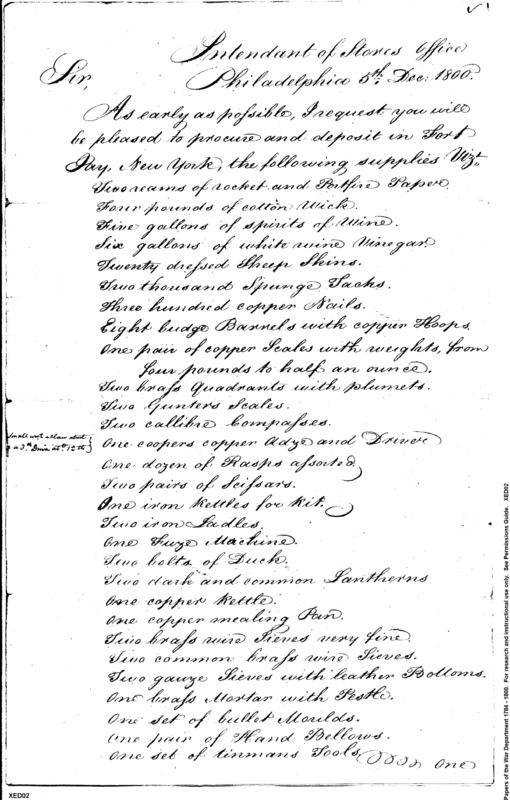 Intendant of Stores Office
Philadelphia 5th. Dec: 1800.
Sir,
As early as possible, I request you will
be pleased to procure and deposit in Fort
Jay, New York, the following supplies Vizt.
Two reams of rocket and Portfire Paper
Four pounds of cotton Wick.
Five gallons of spirits of Wine.
Six gallons of white wine Vinegar.
Twenty dressed Sheep Skins.
Two thousand Spunge Tacks.
Three hundred copper Nails.
Eight budge Barrels with copper Hoops.
One pair of copper Scales with weights, from
four pounds to half an ounce.
Two brass Quadrants with plumets.
Two Gunters Scales.
Two callibre Compasses.
One coopers copper Adze and Driver
One dozen of Rasps assorted
Two pairs of Scissars.
One iron Kettles for Kit.
Two iron Ladles.
One Fuze Machine.
Two bolts of Duck.
Two dark and common Lantherns
One copper Kettle.
One copper mealing Pan.
Two brass wire Sieves very fine
Two common brass wire Sieves.
Two gauze Sieves with leather Bottoms.
One brass Mortar with Pestle.
One set of bullet Moulds.
One pair of Hand Bellows.
One set of tinmans Tools
One
XED02
Papers of the War Department 1784 - 1800. For research and instructional use only. See Permissions Guide. XED02